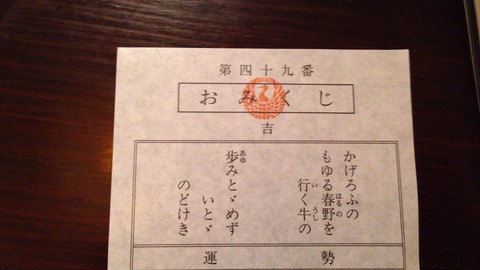 第四十九番
おみくじ
吉
かげろふの
もゆる春野を
行く牛の
歩みとゞめず
いとゞ
のどけき
運勢